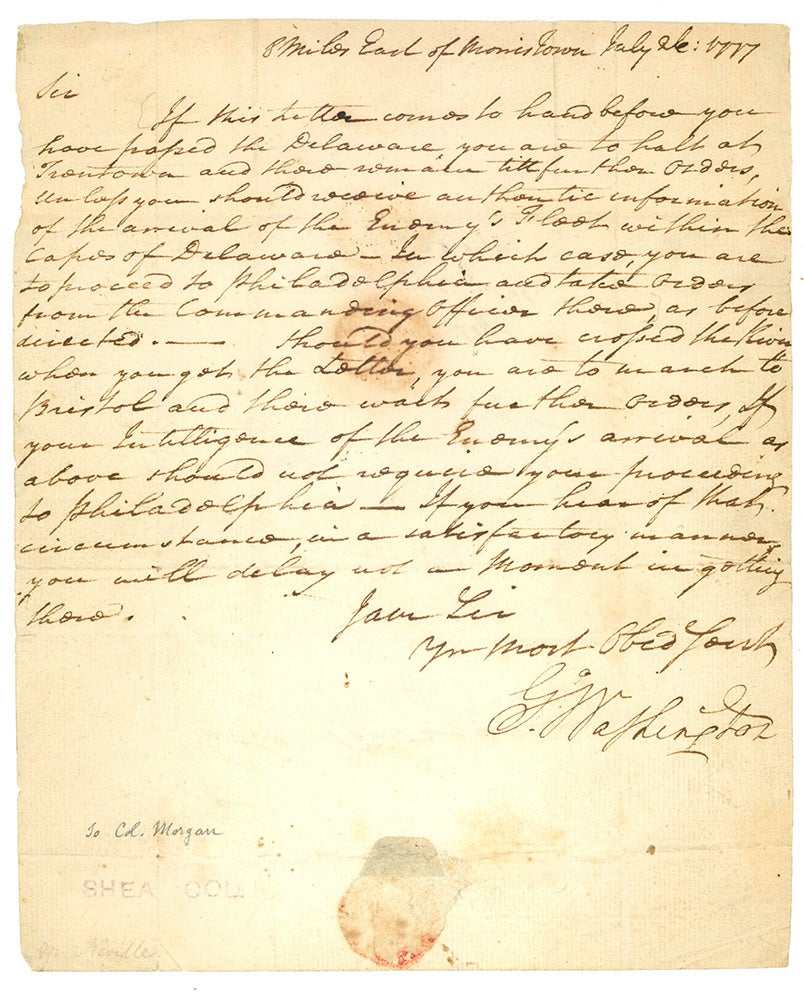 8 Miles East of Morristown July 26: 1777
Sir
If this Letter comes to hand before you
have passed the Delaware you are to halt at
Trentown and there remain till further Orders,
Unless you should receive authentic information
of the arrival of the Enemy's Fleet within the
Capes of Delaware – In which case, you are
to proceed to Philadelphia and take Orders
from the Commanding Officer there, as before
directed. — Should you have crossed the River
when you get the Letter, you are to march to
Bristol and there wait further Orders, If
your Intelligence of the Enemy's arrival as
above should not require your proceeding
to Philadelphia — If you hear of that
circumstance, in a satisfactory manner,
you will delay not a Moment in getting
there.
I am Sir
Yr Most Obed Servt
Go. Washington
To Col. Morgan
SHEA COLL
Neville